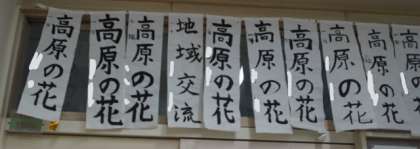 高原の花
高原の花
高原の花
地域交流
高原の花
高原の花
高原の花
高原の花
高原の花
高原の花